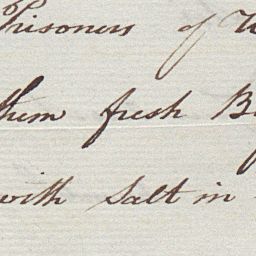 Prisoners of
them fresh
with Salt in